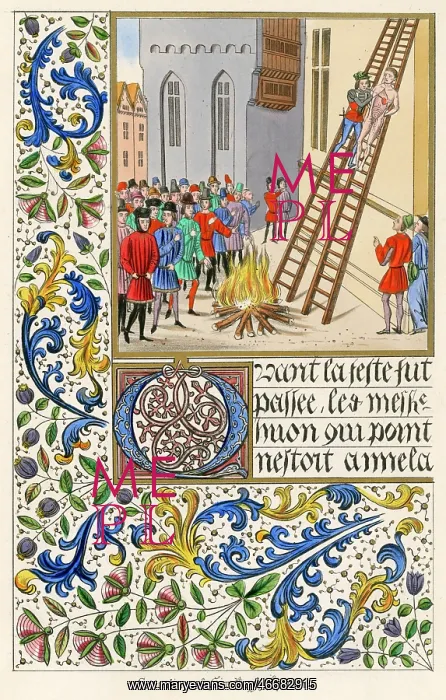 ME
PL
Quant la feste fut
passee, les
huon qui point
nestoit annela
ME
PL
www.maryevans.com/46682915